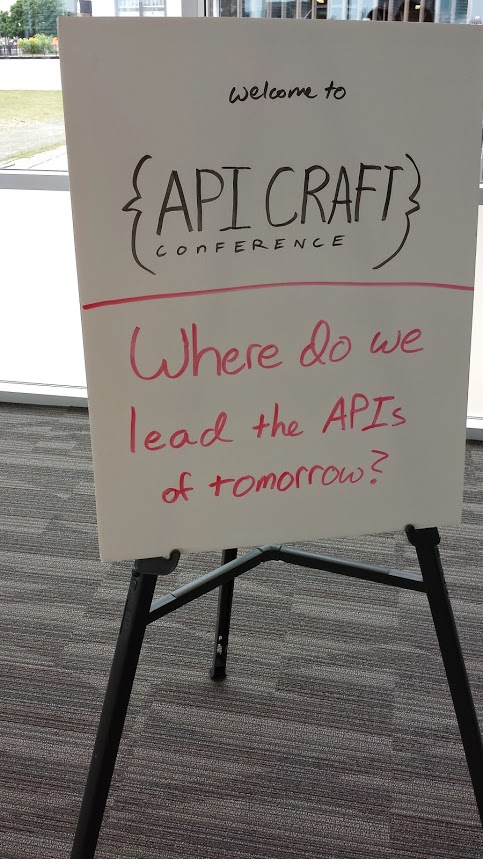 welcome to
{API CRAFT}
CONFERENCE
Where do we
lead the APIs
of tomorrow?